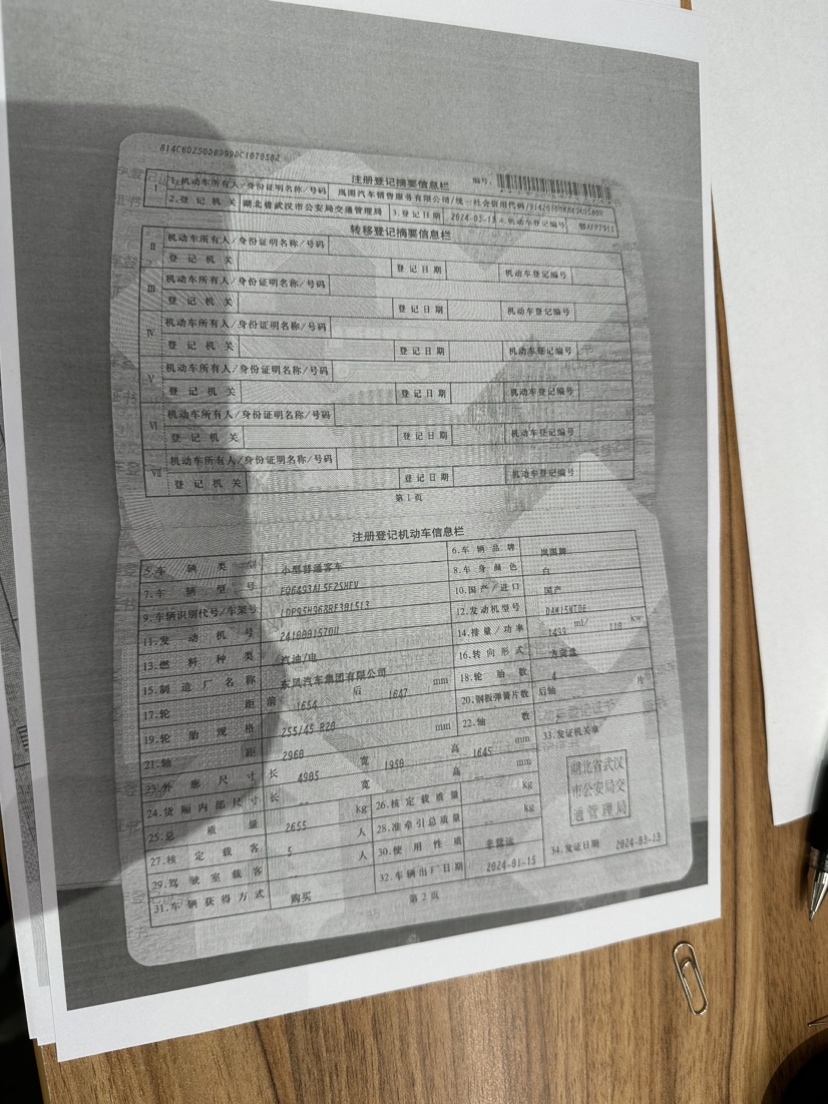 注册登记摘要信息栏 编号:
I 1.机动车所有人/身份证明名称/号码 岚图汽车销售服务有限公司/统一社会信用代码/
2.登记机关 湖北省武汉市公安局交通管理局 3.登记日期 2024-03-13 4.机动车登记编号
转移登记摘要信息栏
II 机动车所有人/身份证明名称/号码
登记机关 登记日期 机动车登记编号
III 机动车所有人/身份证明名称/号码
登记机关 登记日期 机动车登记编号
IV 机动车所有人/身份证明名称/号码
登记机关 登记日期 机动车登记编号
V 机动车所有人/身份证明名称/号码
登记机关 登记日期 机动车登记编号
VI 机动车所有人/身份证明名称/号码
登记机关 登记日期 机动车登记编号
VII 机动车所有人/身份证明名称/号码
登记机关 登记日期 机动车登记编号
第1页
注册登记机动车信息栏
5.车辆类型 小型普通客车 6.车辆品牌 岚图牌
7.车辆型号 8.车身颜色 白
9.车辆识别代号/车架号 10.国产/进口 国产
11.发动机号 12.发动机型号 DAM15NTDE
13.燃料种类 汽油/电 14.排量/功率 1499 ml/ 110 kw
15.制造厂名称 东风汽车集团有限公司 16.转向形式 方向盘
17.轮距 前 1654 后 1647 mm 18.轮胎数 4
19.轮胎规格 255/45 R20 20.钢板弹簧片数 后轴 片
21.轴距 2960 mm 22.轴数
23.外廓尺寸 长 4905 宽 1950 高 1645 mm 33.发证机关章
24.货厢内部尺寸 长 宽 高 mm
25.总质量 2655 kg 26.核定载质量 kg
27.核定载客 5 人 28.准牵引总质量 kg
29.驾驶室载客 人 30.使用性质 非营运
31.车辆获得方式 购买 32.车辆出厂日期 2024-01-15 34.发证日期 2024-03-13
湖北省武汉
市公安局交
通管理局
第2页